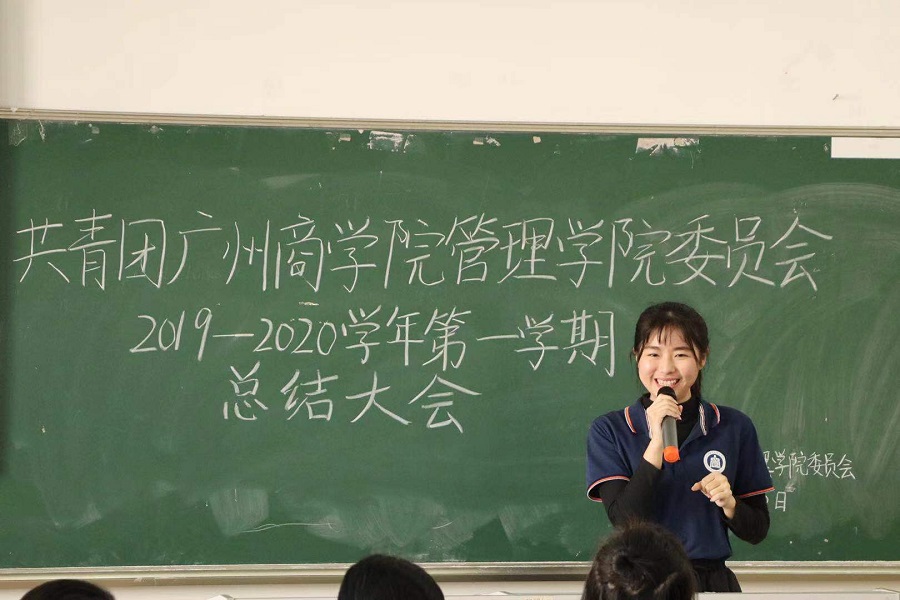 共青团广州商学院管理学院委员会
2019—2020学年第一学期
总结大会
理学院委员会
日